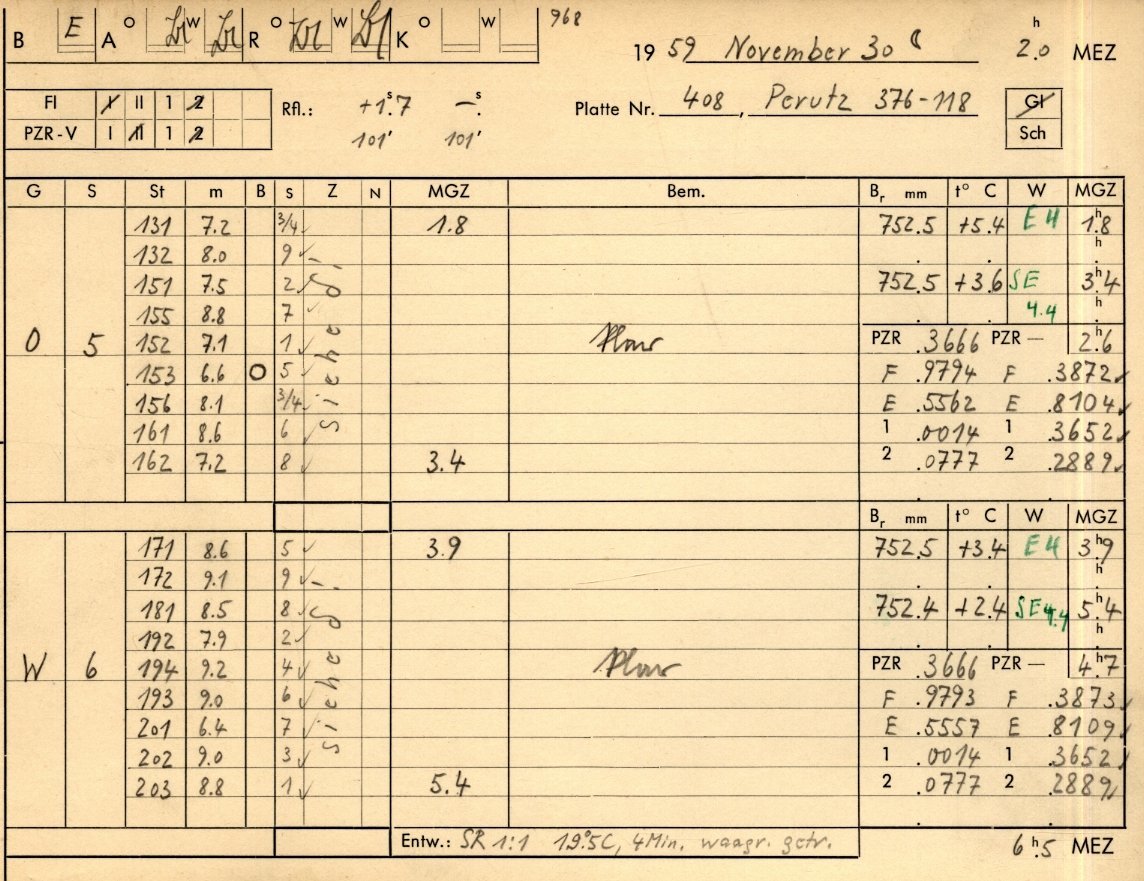 968
B E A O W R O W K O W
19 59 November 30 ☾ 2.0 h MEZ
FI I II 1 2
PZR-V I II 1 2
Rfl.: +1.ˢ7 —.ˢ
101' 101'
Platte Nr. 408, Perutz 376-118
Gl
Sch
G S St m B S Z N MGZ Bem. Bᵣ mm t° C W MGZ
131 7.2 3/4 ✓ 1.8 752.5 +5.4 E4 1.ʰ8
132 8.0 9 ✓ . . .ʰ
151 7.5 2 ✓ 752.5 +3.6 SE 3.ʰ4
155 8.8 7 ✓ 4.4 .ʰ
O 5 152 7.1 1 ✓ PZR .3666 PZR — 2.ʰ6
153 6.6 O 5 ✓ F .9794 F .3872 ✓
156 8.1 3/4 ✓ E .5562 E .8104 ✓
161 8.6 6 ✓ 1 .0014 1 .3652 ✓
162 7.2 8 ✓ 3.4 2 .0777 2 .2889 ✓
siehe
Bᵣ mm t° C W MGZ
171 8.6 5 ✓ 3.9 752.5 +3.4 E4 3.ʰ9
172 9.1 9 ✓ . . .ʰ
181 8.5 8 ✓ 752.4 +2.4 SE 4.4 5.ʰ4
192 7.9 2 ✓ . . .ʰ
W 6 194 9.2 4 ✓ PZR .3666 PZR — 4.ʰ7
193 9.0 6 ✓ F .9793 F .3873 ✓
201 6.4 7 ✓ E .5557 E .8109 ✓
202 9.0 3 ✓ 1 .0014 1 .3652 ✓
203 8.8 1 ✓ 5.4 2 .0777 2 .2889 ✓
siehe
Entw.: SR 1:1 19.°5C, 4 Min. waagr. getr. 6 ʰ.5 MEZ